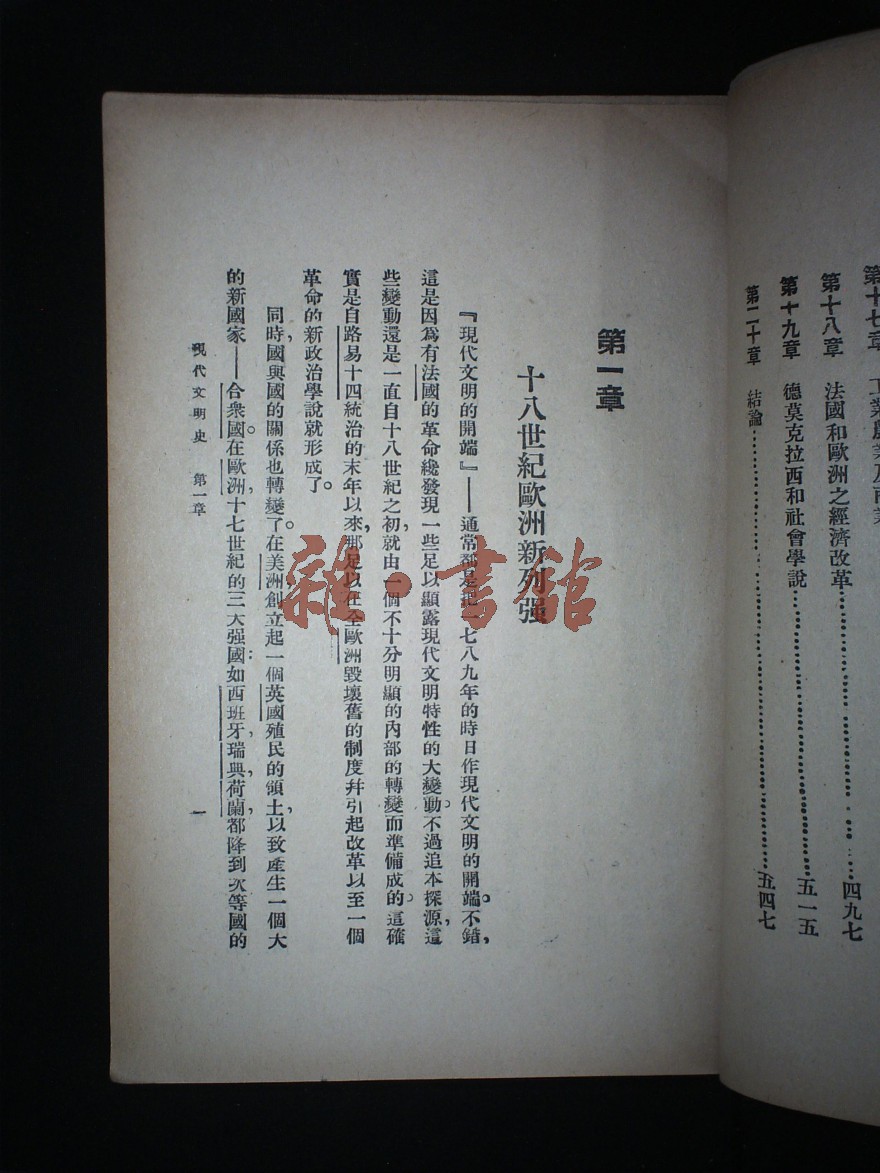 第十七章 工業農業及商業
第十八章 法國和歐洲之經濟改革……四九七
第十九章 德莫克拉西和社會學說……五一五
第二十章 結論……五四七
第一章
十八世紀歐洲新列强
『現代文明的開端』——通常都是把一七八九年的時日作現代文明的開端。不錯，
這是因為有法國的革命纔發現一些足以顯露現代文明特性的大變動。不過追本探源，這
些變動還是一直自十八世紀之初，就由一個不十分明顯的內部的轉變而準備成的。這確
實是自路易十四統治的末年以來，那足以在全歐洲毀壞舊的制度幷引起改革以至一個
革命的新政治學說就形成了。
同時，國與國的關係也轉變了。在美洲創立起一個英國殖民的領土，以致產生一個大
的新國家——合衆國。在歐洲，十七世紀的三大强國：如西班牙，瑞典，荷蘭，都降到次等國的
現代文明史 第一章
一
雜·書館